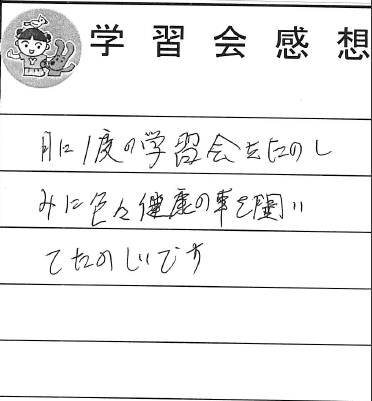 学習会感想
月に1度の学習会をたのし
みに色々健康の事を聞い
てたのしいです